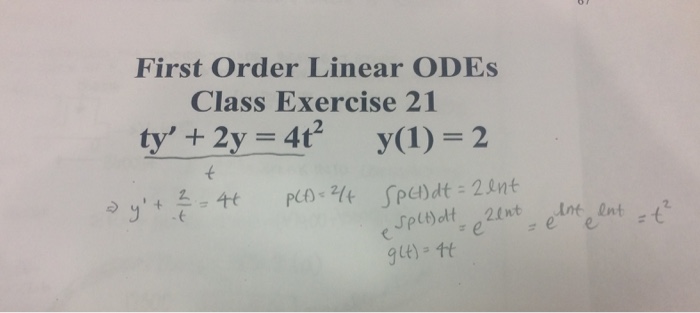 First Order Linear ODEs
Class Exercise 21
ty' + 2y = 4t² y(1) = 2
t
⇒ y' + 2/t = 4t p(t) = 2/t ∫p(t)dt = 2lnt
e^∫p(t)dt = e^2lnt = e^lnt e^lnt = t²
g(t) = 4t